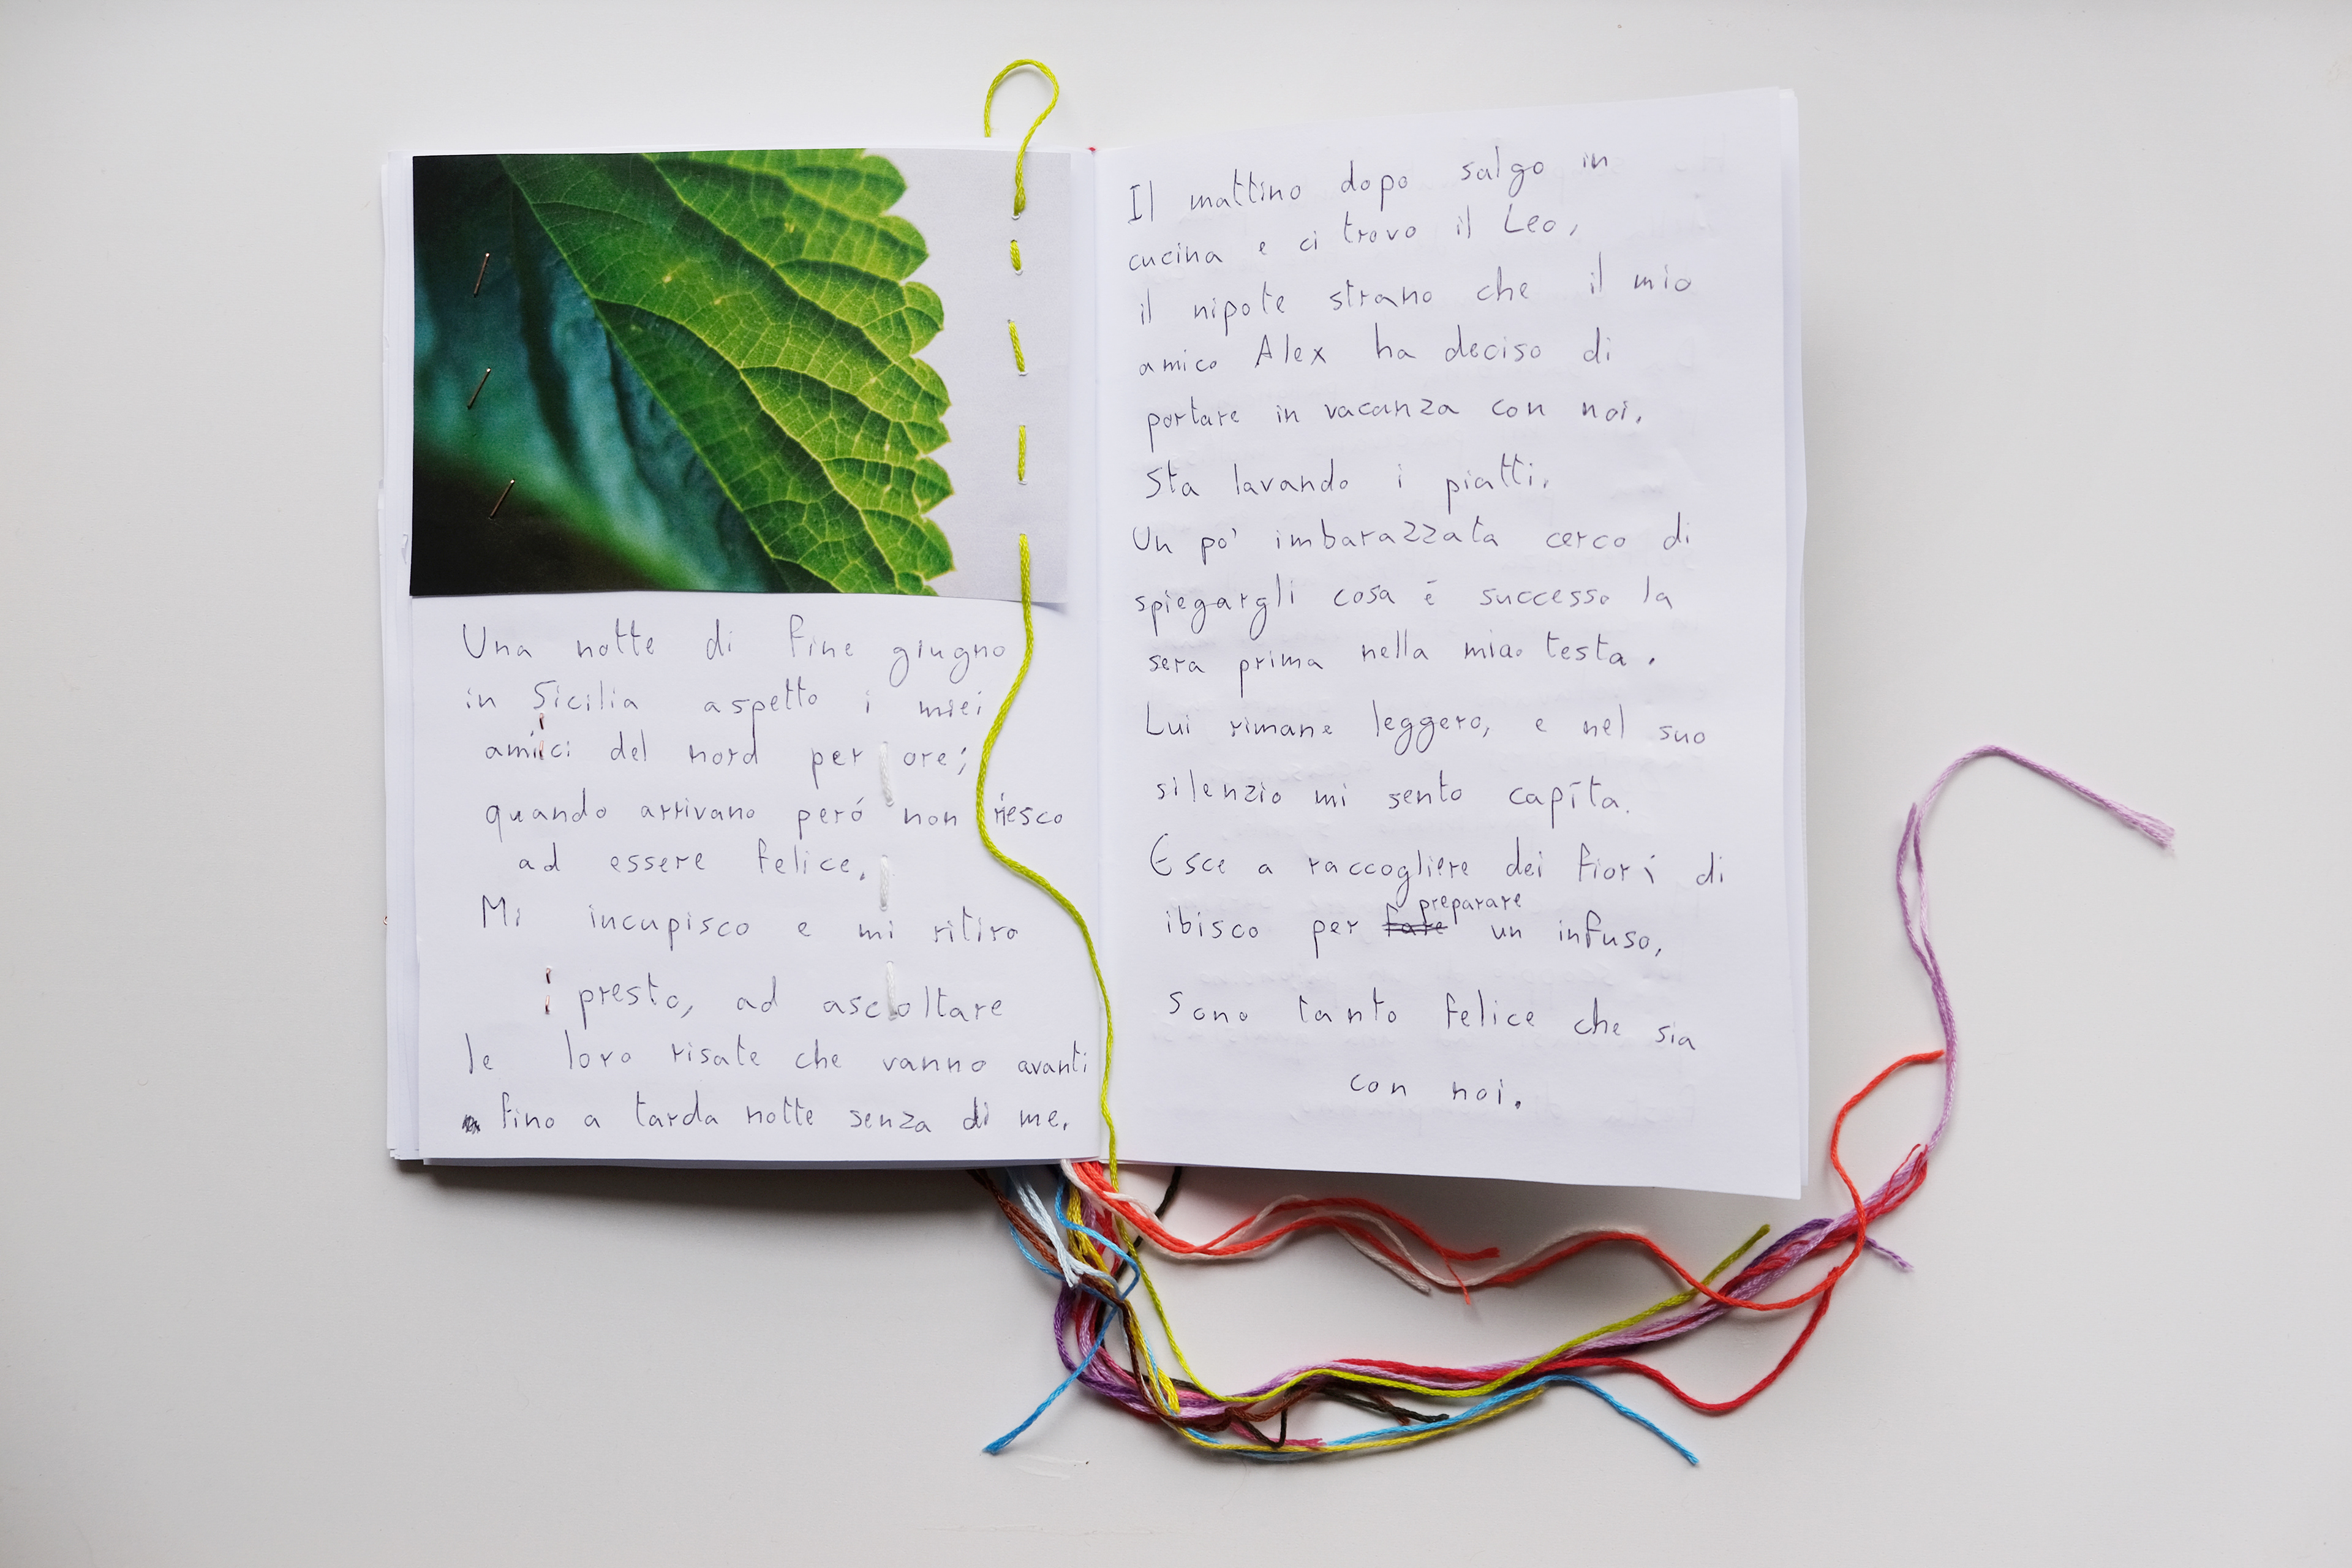 Una notte di fine giugno
in Sicilia aspetto i miei
amici del nord per ore;
quando arrivano peró non riesco
ad essere felice.
Mi incupisco e mi ritiro
presto, ad ascoltare
le loro risate che vanno avanti
fino a tarda notte senza di me.
Il mattino dopo salgo in
cucina e ci trovo il Leo,
il nipote strano che il mio
amico Alex ha deciso di
portare in vacanza con noi.
Sta lavando i piatti.
Un po' imbarazzata cerco di
spiegargli cosa é successo la
sera prima nella mia testa.
Lui rimane leggero, e nel suo
silenzio mi sento capita.
Esce a raccogliere dei fiori di
preparare
ibisco per fare un infuso,
sono tanto felice che sia
con noi.